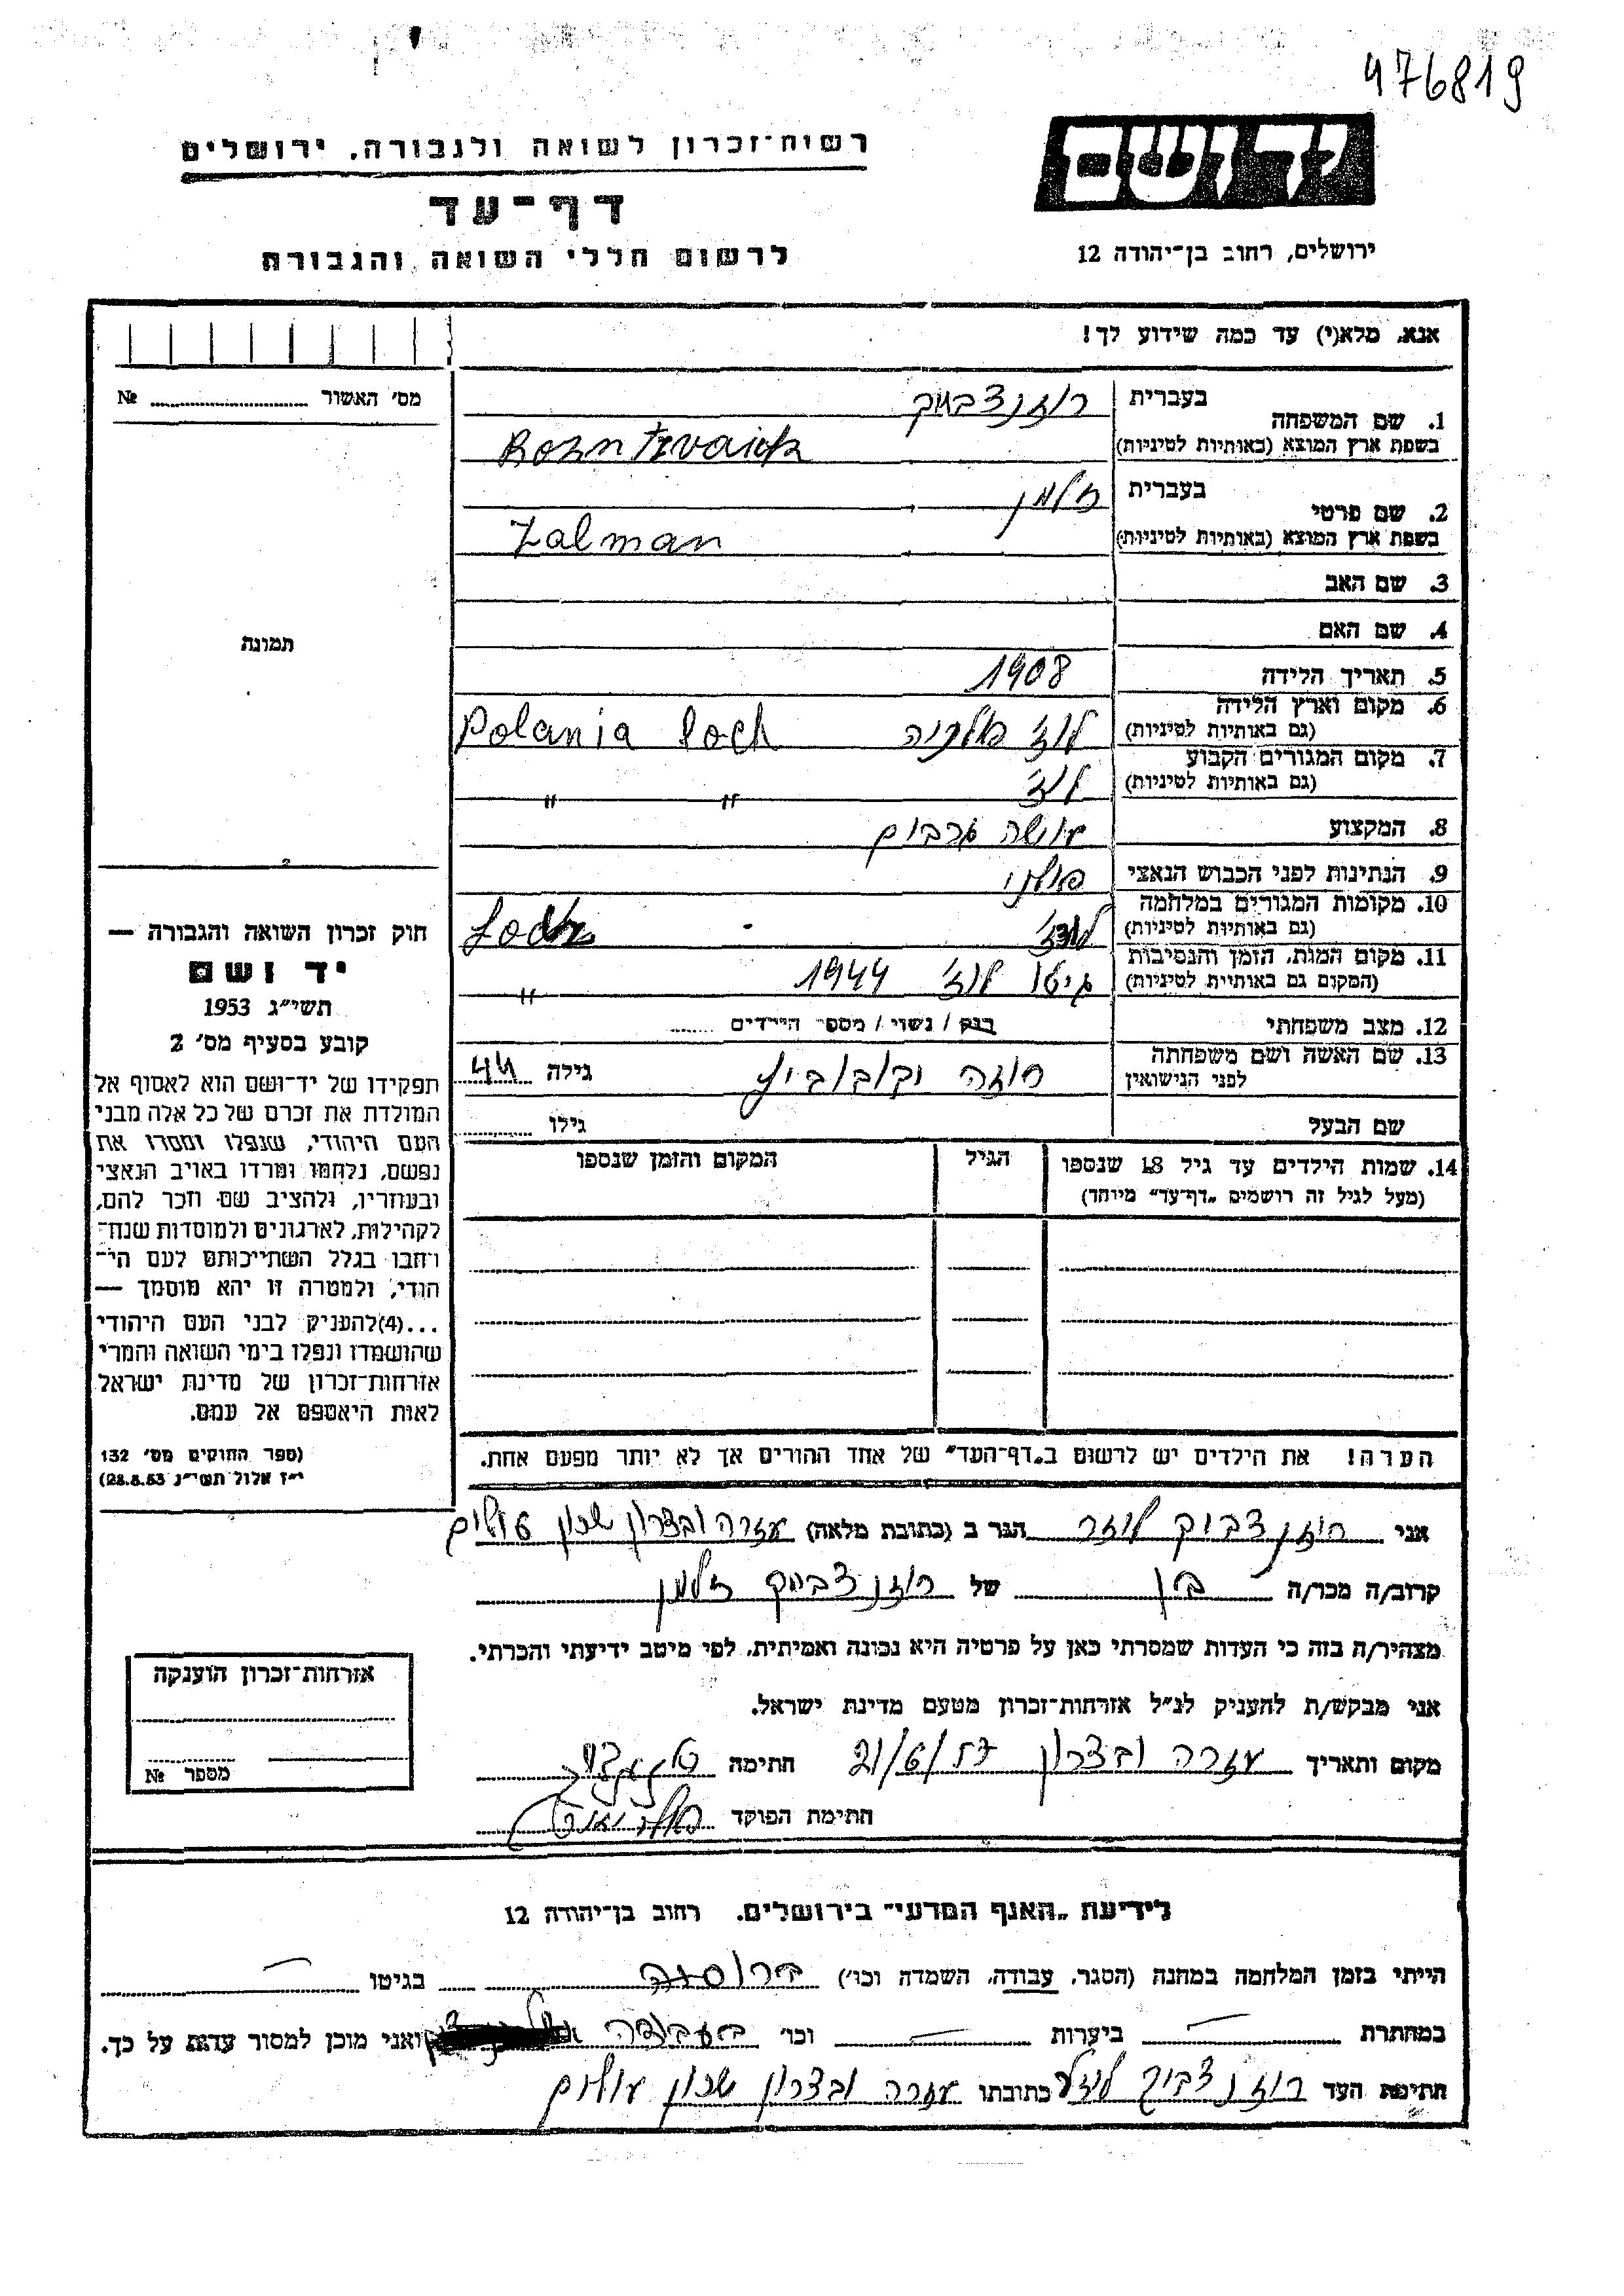 476819
יד ושם
רשות־זכרון לשואה ולגבורה, ירושלים
דף־עד
לרשום חללי השואה והגבורה
ירושלים, רחוב בן־יהודה 12
אנא, מלא(י) עד כמה שידוע לך!
מס' האשור № 
1. שם המשפחה
בעברית רוזנצבייק
בשפת ארץ המוצא (באותיות לטיניות) Rozntzvaick
2. שם פרטי
בעברית זלמן
בשפת ארץ המוצא (באותיות לטיניות) Zalman
3. שם האב
4. שם האם
5. תאריך הלידה 1908
6. מקום וארץ הלידה (גם באותיות לטיניות) לודז פולניה Polania Loch
7. מקום המגורים הקבוע (גם באותיות לטיניות) לודז' " "
8. המקצוע עושה גרבים
9. הנתינות לפני הכבוש הנאצי פולני
10. מקומות המגורים במלחמה (גם באותיות לטיניות) לודז' Lodz
11. מקום המות, הזמן והנסיבות (המקום גם באותיות לטיניות) גיטו לודז' 1944 "
12. מצב משפחתי רווק / נשוי / מספר הילדים
13. שם האשה ושם משפחתה לפני הנישואין רוזה יקובוביץ גילה 44
שם הבעל גילו
14. שמות הילדים עד גיל 18 שנספו (מעל לגיל זה רושמים „דף־עד" מיוחד)
הגיל
המקום והזמן שנספו
הערה! את הילדים יש לרשום ב„דף־העד" של אחד ההורים אך לא יותר מפעם אחת.
תמונה
חוק זכרון השואה והגבורה —
יד ושם
תשי"ג 1953
קובע בסעיף מס' 2
תפקידו של יד־ושם הוא לאסוף אל
המולדת את זכרם של כל אלה מבני
העם היהודי, שנפלו ומסרו את
נפשם, נלחמו ומרדו באויב הנאצי
ובעוזריו, ולהציב שם וזכר להם,
לקהילות, לארגונים ולמוסדות שנח־
רחבו בגלל השתייכותם לעם הי־
הודי, ולמטרה זו יהא מוסמך —
...(4)להעניק לבני העם היהודי
שהושמדו ונפלו בימי השואה והמרי
אזרחות־זכרון של מדינת ישראל
לאות היאספם אל עמם.
(ספר החוקים מס' 132
י"ז אלול תשי"ג 28.8.53)
אני רוזנצבייק לוזר הגר ב (כתובת מלאה) עזרה ובצרון שכון עולים
קרוב/ה מכר/ה בן של רוזנצבייק זלמן
מצהיר/ה בזה כי העדות שמסרתי כאן על פרטיה היא נכונה ואמיתית, לפי מיטב ידיעתי והכרתי.
אני מבקש/ת להעניק לנ"ל אזרחות־זכרון מטעם מדינת ישראל.
מקום ותאריך עזרה ובצרון 21/6/57 חתימה
חתימת הפוקד
אזרחות־זכרון הוענקה
מספר №
לידיעת „האגף המדעי" בירושלים, רחוב בן־יהודה 12
הייתי בזמן המלחמה במחנה (הסגר, עבודה, השמדה וכו') ברוסיה בגיטו —
במחתרת — ביערות — וכו' בעבודה ואני מוכן למסור עדות על כך.
חתימת העד רוזנצבייק לוזר כתובתו עזרה ובצרון שכון עולים